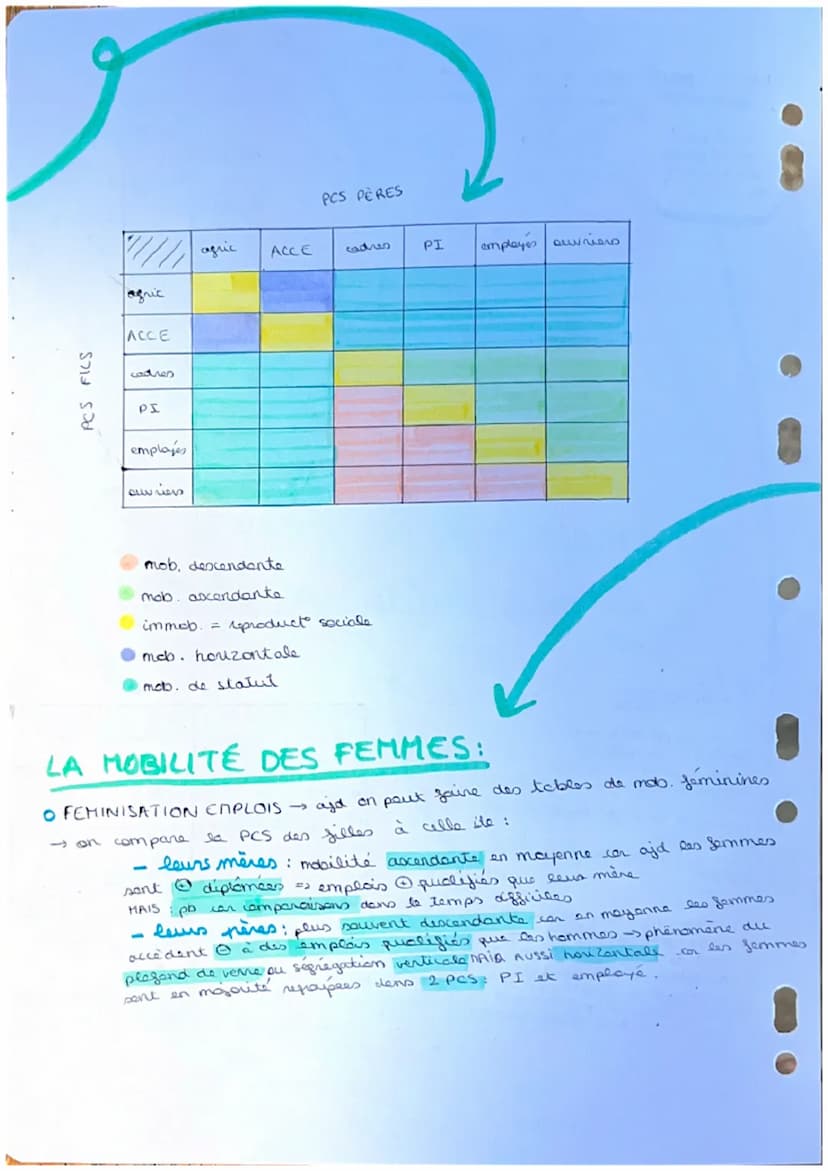 PCS PÈRES
agric ACCE cadres PI employés ouvriers
agric
ACCE
cadres
PI
employés
ouvriers
PCS FILS
mob. descendante
mob. ascendante
immob. = reproduct° sociale
mob. horizontale
mob. de statut
LA MOBILITÉ DES FEMMES:
FEMINISATION EMPLOIS → ajd on peut faire des tables de mob. féminines
→ on compare la PCS des filles à celle de :
- leurs mères : mobilité ascendante en moyenne car ajd les femmes
sont + diplômées => emplois + qualifiés que leur mère
MAIS : pb car comparaisons dans le temps difficiles
- leurs pères : plus souvent descendante car en moyenne les femmes
accèdent - à des emplois qualifiés que les hommes → phénomène du
plafond de verre ou ségrégation verticale MAIS AUSSI horizontale car les femmes
sont en majorité regroupées dans 2 PCS : PI et employé.